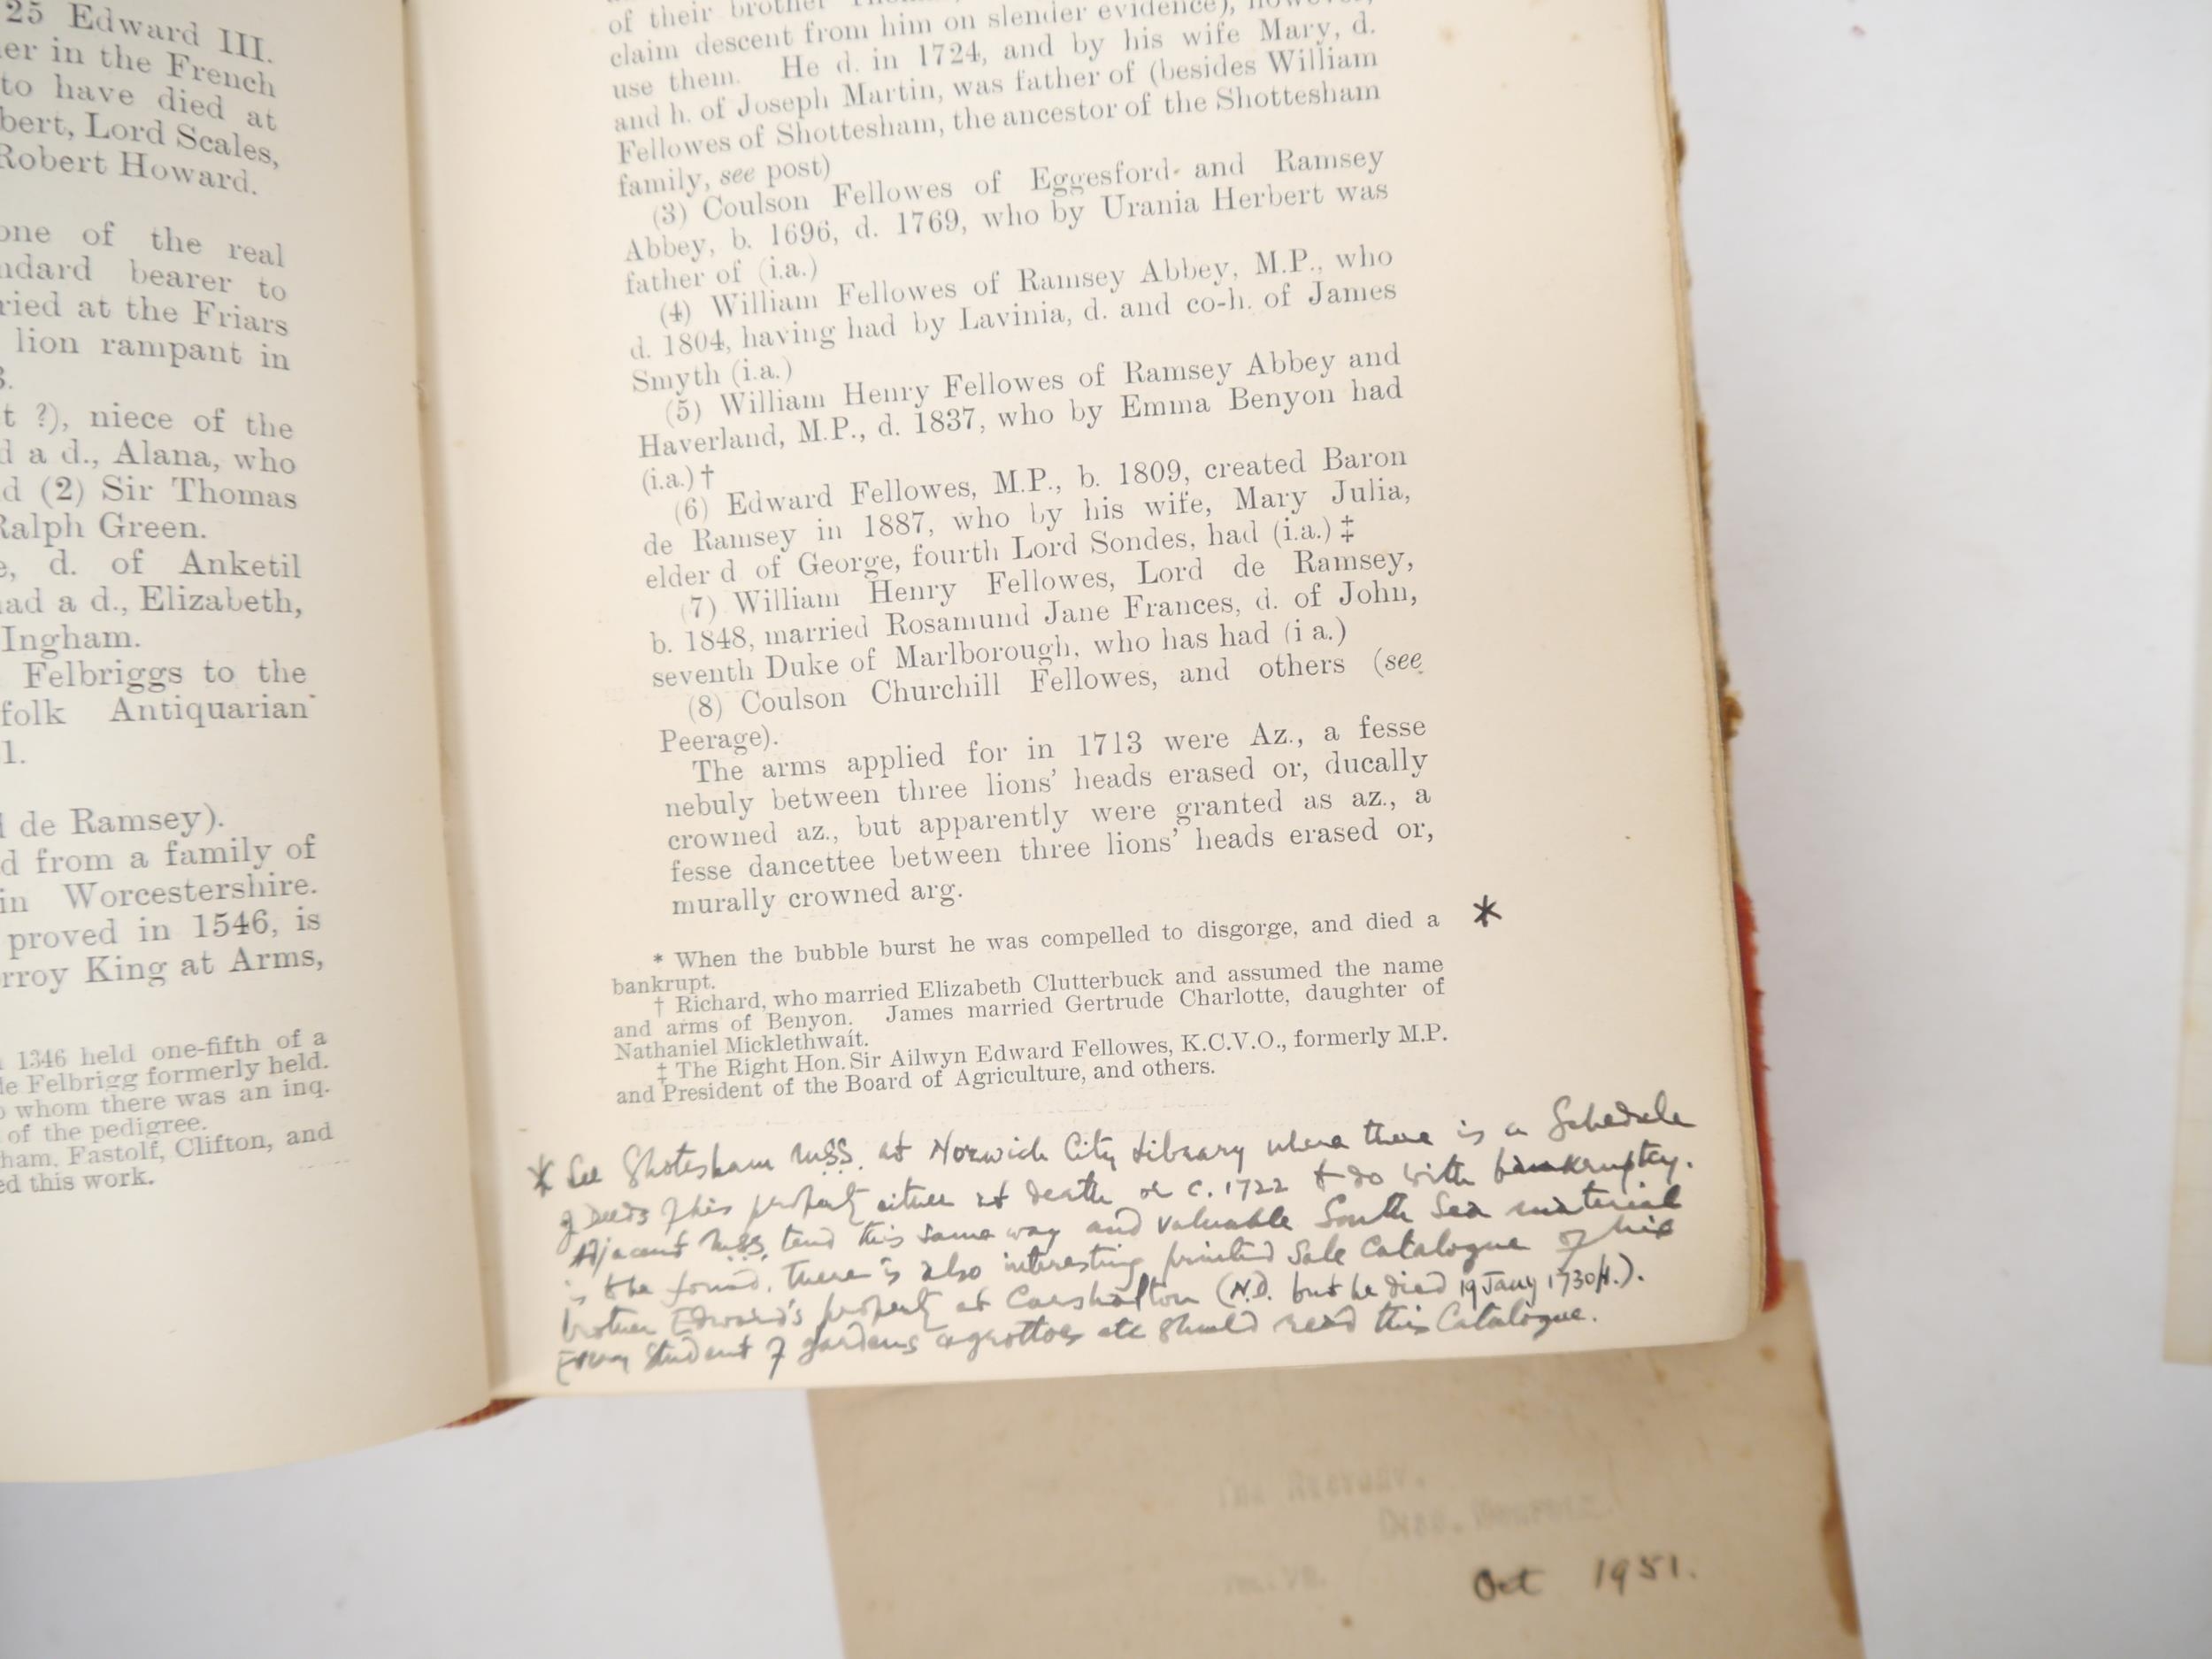 25 Edward III.
er in the French
to have died at
bert, Lord Scales,
Robert Howard.
one of the real
ndard bearer to
ried at the Friars
lion rampant in
3.
t ?), niece of the
d a d., Alana, who
d (2) Sir Thomas
Ralph Green.
e, d. of Anketil
had a d., Elizabeth,
Ingham.
Felbriggs to the
folk Antiquarian
1.
l de Ramsey).
d from a family of
in Worcestershire.
proved in 1546, is
rroy King at Arms,
1346 held one-fifth of a
de Felbrigg formerly held.
o whom there was an inq.
of the pedigree.
ham, Fastolf, Clifton, and
ed this work.
of their brother
claim descent from him on slender evidence), however,
use them. He d. in 1724, and by his wife Mary, d.
and h. of Joseph Martin, was father of (besides William
Fellowes of Shottesham, the ancestor of the Shottesham
family, see post)
(3) Coulson Fellowes of Eggesford and Ramsey
Abbey, b. 1696, d. 1769, who by Urania Herbert was
father of (i.a.)
(4) William Fellowes of Ramsey Abbey, M.P., who
d. 1804, having had by Lavinia, d. and co-h. of James
Smyth (i.a.)
(5) William Henry Fellowes of Ramsey Abbey and
Haverland, M.P., d. 1837, who by Emma Benyon had
(i.a.) †
(6) Edward Fellowes, M.P., b. 1809, created Baron
de Ramsey in 1887, who by his wife, Mary Julia,
elder d of George, fourth Lord Sondes, had (i.a.) ‡
(7) William Henry Fellowes, Lord de Ramsey,
b. 1848, married Rosamund Jane Frances, d. of John,
seventh Duke of Marlborough, who has had (i a.)
(8) Coulson Churchill Fellowes, and others (see
Peerage).
The arms applied for in 1713 were Az., a fesse
nebuly between three lions' heads erased or, ducally
crowned az., but apparently were granted as az., a
fesse dancettee between three lions' heads erased or,
murally crowned arg.
* When the bubble burst he was compelled to disgorge, and died a *
bankrupt.
† Richard, who married Elizabeth Clutterbuck and assumed the name
and arms of Benyon. James married Gertrude Charlotte, daughter of
Nathaniel Micklethwait.
‡ The Right Hon. Sir Ailwyn Edward Fellowes, K.C.V.O., formerly M.P.
and President of the Board of Agriculture, and others.
* See Shotesham MSS. at Norwich City Library where there is a Schedule
of Deeds of his property either at death or c. 1722 & do with bankruptcy.
Adjacent MSS. tend this same way and valuable South Sea material
is to be found. There is also interesting printed Sale Catalogue of his
brother Edward's property at Carshalton (N.D. but he died 19 Jany 1730/1.).
Every student of gardens & grottoes etc should read this Catalogue.
The Rectory.
Oct 1951.